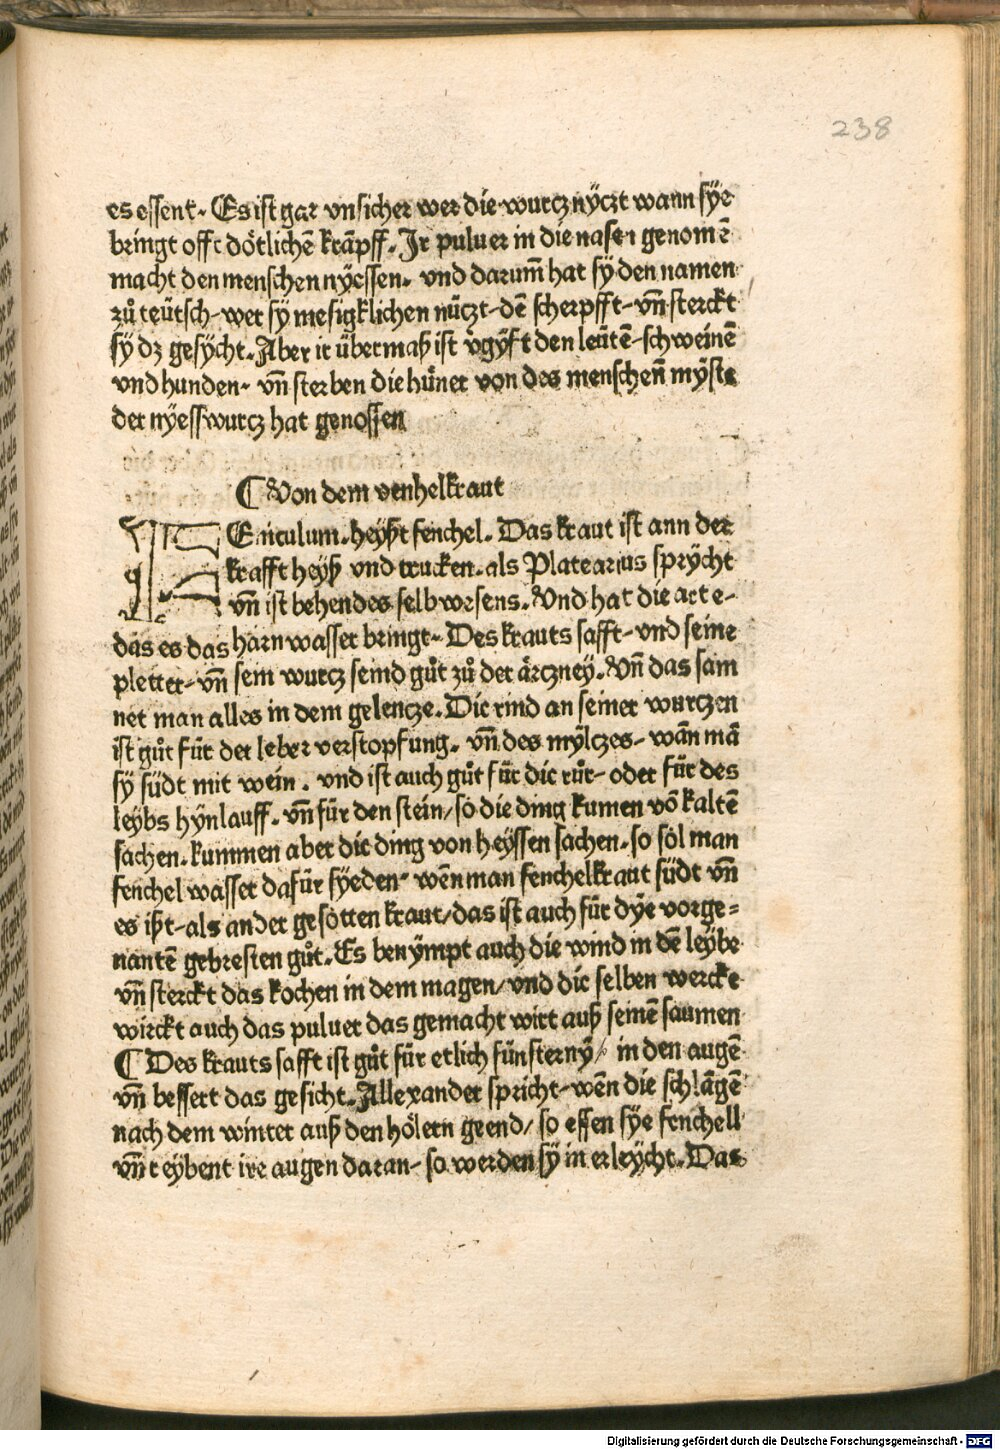 238
es essent. Es ist gar vnsicher wer die wurcz nÿczt wann sÿe
bringt offt dötlichē krāpff. Jr puluer in die nasen genomē
macht den menschen nÿessen. vnd darum̄ hat sÿ den namen
zů teütsch. wer sy mesigklichen nüczt. dē scherpfft. vn̄ sterckt
sÿ dz gesÿcht. Aber ir übermaß ist v̈gÿft den leütē. schweinē
vnd hunden. vn̄ sterben die hüner von des menschen̄ mÿst
der nÿesswurcz hat genossen
¶ Von dem venhelkraut
FEniculum. heyßt fenchel. Das kraut ist ann der
krafft heÿß vnd trucken. als Platearius sprÿcht
vn̄ ist behendes selbwesens. Vnd hat die art e-
das es das harn wasser bringt. Des krauts safft. vnd seine
pletter. vn̄ sein wurcz seind gůt zů der ärczneÿ. Vn̄ das sam
net man alles in dem gelencze. Die rind an seiner wurczen
ist gůt für der leber verstopfung. vn̄ des mÿlczes. wān mā
sÿ südt mit wein. vnd ist auch gůt für die rür. oder für des
leÿbs hÿnlauff. vn̄ für den stein/ so die ding kumen vō kaltē
sachen. kummen aber die ding von heÿssen sachen. so sol man
fenchel wasser dafür sÿeden. wēn man fenchelkraut südt vn̄
es ißt. als ander gesotten kraut/ das ist auch für dÿe vorge=
nantē gebresten gůt. Es benÿmpt auch die wind in dē leÿbe
vn̄ sterckt das kochen in dem magen/ vnd die selben wercke
wirckt auch das puluer das gemacht wirt auß seinē saumen
¶ Des krauts safft ist gůt für etlich fünsternÿ/ in den augē
vn̄ bessert das gesicht. Allexander spricht. wēn die schlāgē
nach dem winter auß den hölern geend/ so essen sÿe fenchell
vn̄ reÿbent ire augen daran. so werden sÿ in erleÿcht. Das
Digitalisierung gefördert durch die Deutsche Forschungsgemeinschaft - DFG